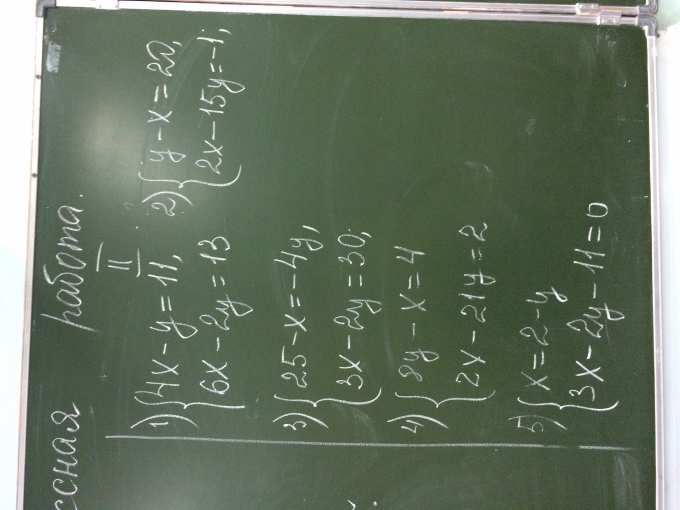 ссная работа.
II
1) { 4x - y = 11, 2) { y - x = 20,
6x - 2y = 13 2x - 15y = -1;
3) { 25 - x = -4y,
3x - 2y = 30;
4) { 8y - x = 4
2x - 21y = 2
5) { x = 2 - y
3x - 2y - 11 = 0